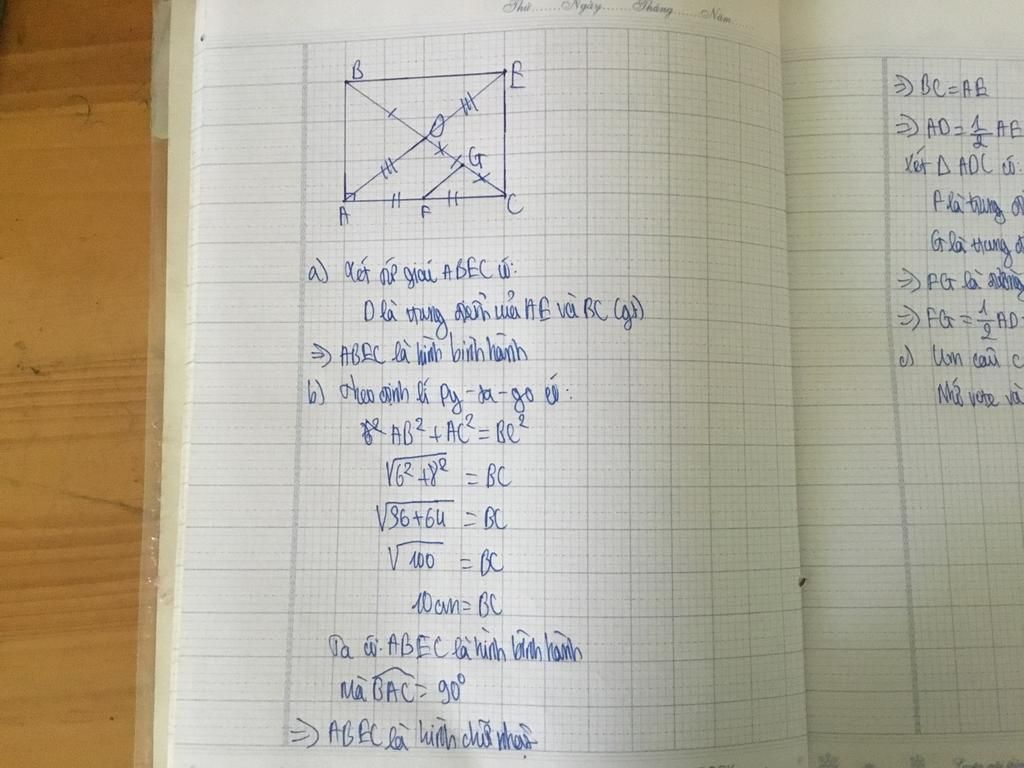 Thứ......Ngày......Tháng......Năm......
B E
D
G
A F C
a) Xét tứ giác ABEC có:
D là trung điểm của AE và BC (gt)
=> ABEC là hình bình hành
b) Theo định lí Py-ta-go có:
AB² + AC² = BC²
√6² + 8² = BC
√36+64 = BC
√100 = BC
10cm = BC
Ta có: ABEC là hình bình hành
Mà BAC = 90°
=> ABEC là hình chữ nhật
=> BC = AE
=> AD = 1/2 AE
Xét Δ ADC có:
F là trung
G là trung
=> FG là đường
=> FG = 1/2 AD
c)
Nhớ vote và